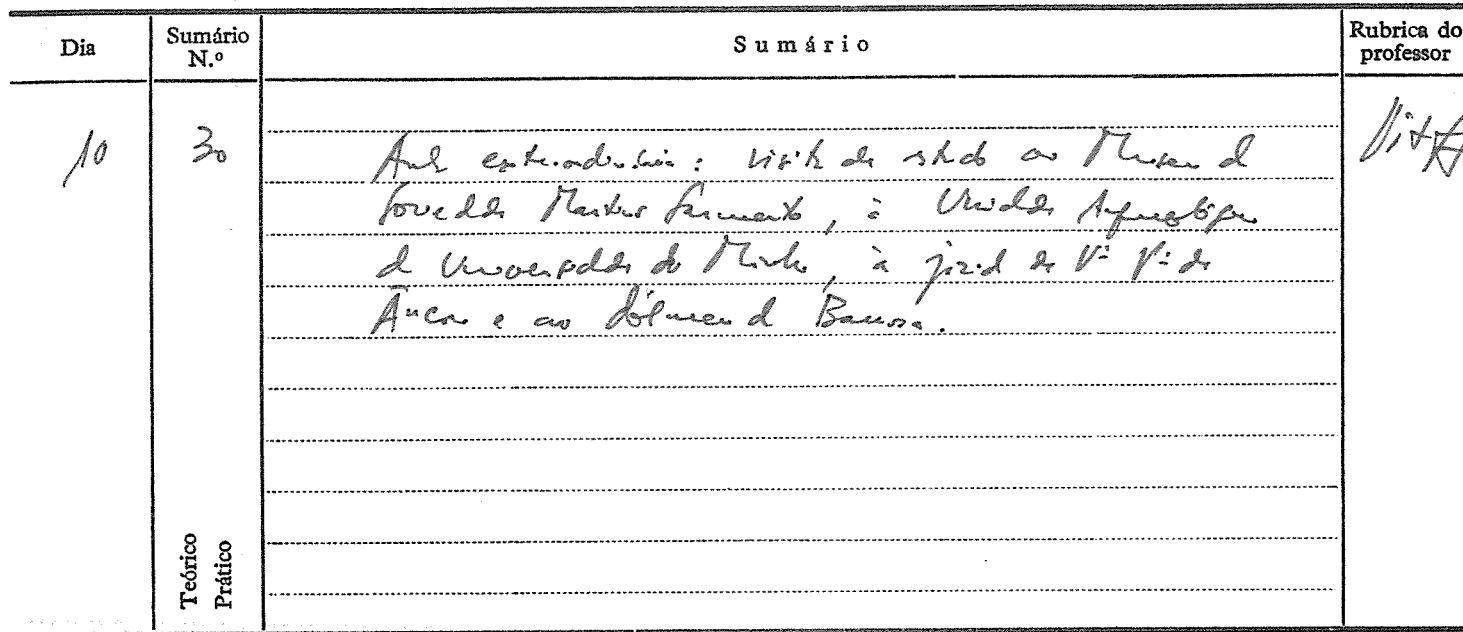 Dia
Sumário N.º
Sumário
Rubrica do professor
10
30
Aula extraordinária: visita de estudo ao Museu da
Sociedade Martins Sarmento, à Unidade Arqueologia
da Universidade do Minho, à jazida de Vª Pª de
Âncora e ao dólmen da Barrosa.
Teórico
Prático